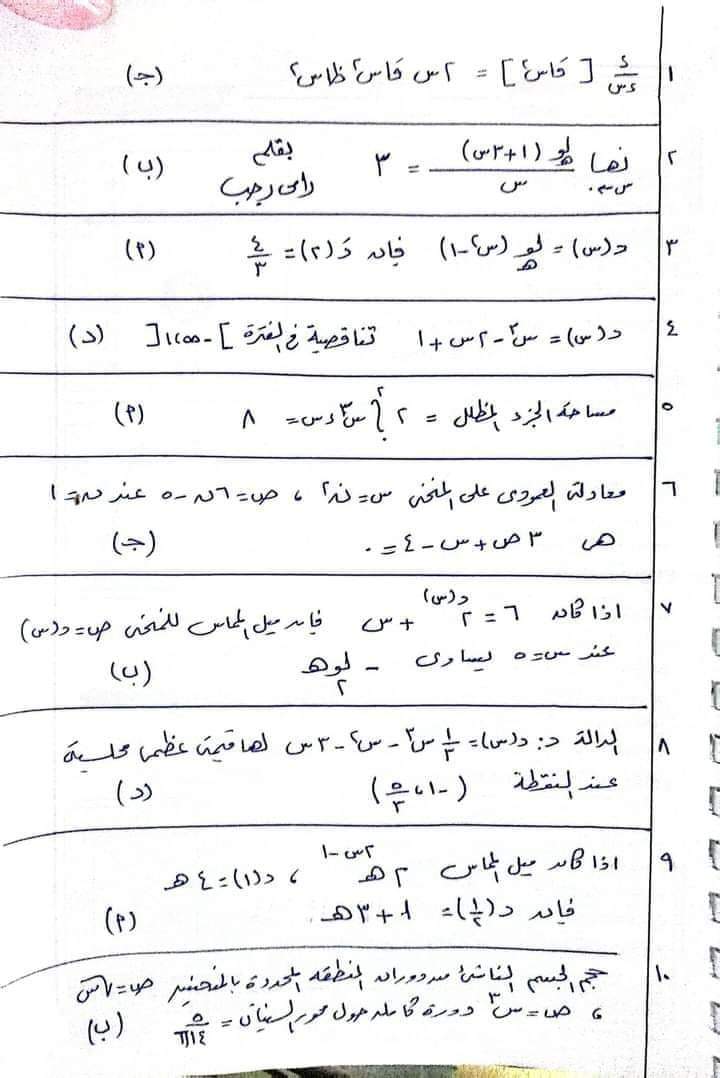 ١ د/دس [قاس٢] = ٢س قاس٢ ظاس٢ (جـ)
٢ نهـــا س←٠ لو هـ (١+٣س) / س = ٣ بقلم رامى رجب (ب)
٣ د(س) = لو هـ (س٢-١) فإن دَ(٢) = ٤/٣ (٢)
٤ د(س) = س٢-٢س+١ تناقصية فى الفترة ]-∞،١[ (د)
٥ مساحة الجزء المظلل = ٢ ∫ ٢ س٣ دس = ٨ (٢)
٦ معادلة العمودى على المنحنى س=ن٢ ، ص=٦ن-٥ عند ن=١
هى ٣ص+س-٤=٠ (جـ)
٧ اذا كان ٦ = ٢ د(س) + س فإن ميل المماس للمنحنى ص=د(س)
عند س=٥ يساوى - لو ٢ هـ (ب)
٨ الدالة د: د(س) = ١/٣ س٣ - س٢ - ٣س لها قيمة عظمى محلية
عند النقطة (-١، ٥/٣) (د)
٩ اذا كان ميل المماس ٢هـ ٢س-١ ، د(١) = ٤هـ
فإن د(١/٢) = ١+٣هـ (٢)
١٠ حجم الجسم الناشئ من دوران المنطقة المحددة بالمنحنيين ص=√س
، ص=س٣ دورة كاملة حول محور السينات = ٥/١٤π (ب)